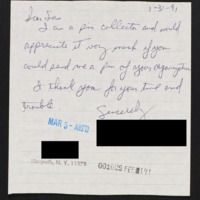 1-31-91
Dear Sirs
I am a pin collector and would
appreciate it very much if you
could send me a pin of your organization
I thank you for your time and
trouble.
Sincerely
MAR 5 -
N. Y.